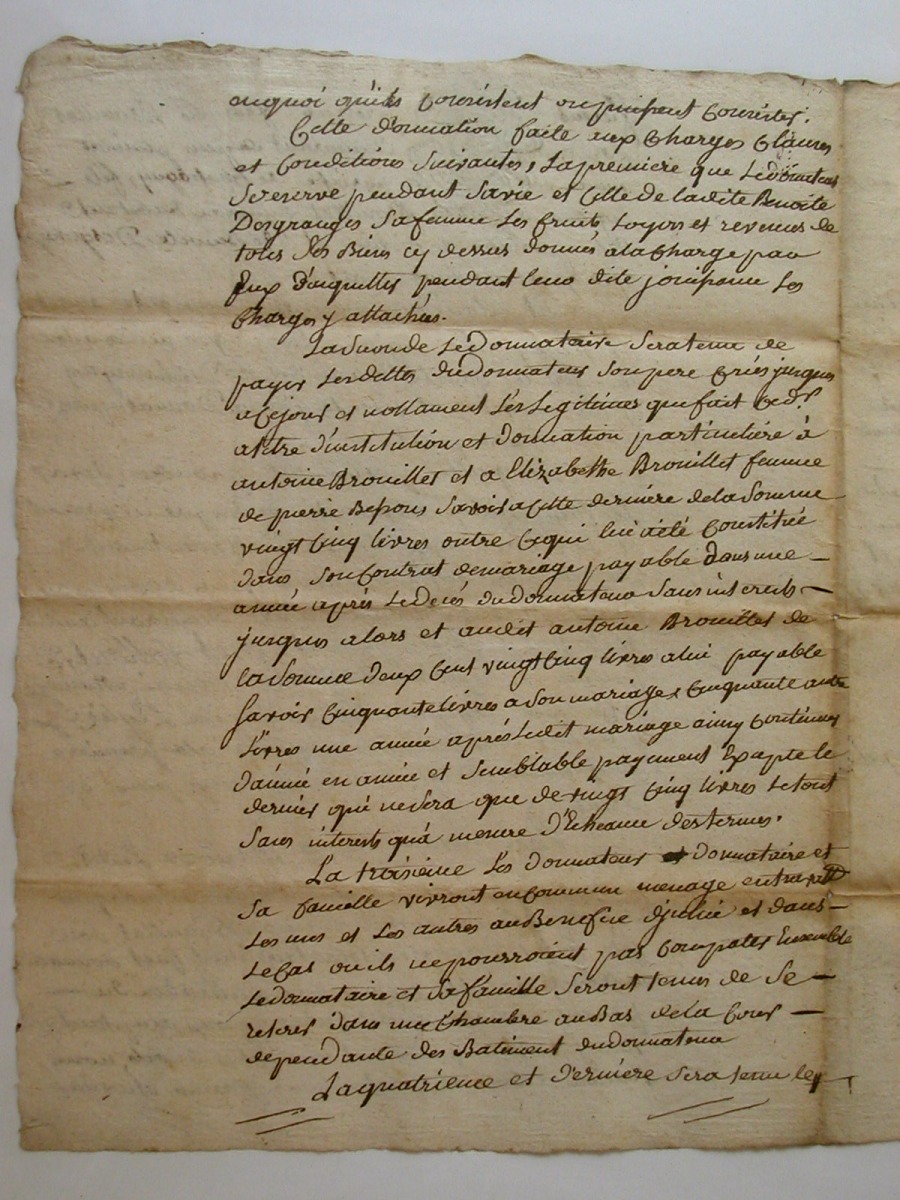 enquoi quils Consistent ou puissent Consister.
Cette donnation faite aux Charges Clauses
et Conditions Suivantes, La premiere que Ledonnateur
Sereserve pendant Savie et Celle de ladite Benoite
Desgranges Safemme Les fruits Loyers et revenus de
tous Les Biens cy dessus donnés alaCharge par
Eux d'acquitter pendant leur dite jouissance Les
Charges y attachées.
La Seconde Ledonnataire Seratenu de
payer Les dettes dudonnateur Sonpere Créés jusques
aCejour et nottament Les Legitimes que fait Led.
atitre d'institution et donnation particuliere à
antoine Brouillet et a Elizabethe Brouillet femme
de pierre Besson Savoir aCette derniere dela Somme
vingt Cinq livres outre Cequi lui aété Constitué
dans Son Contrat demariage payable dans une
année après Ledeces dudonnateur Sans interests
jusques alors et audit antoine Brouillet de
la Somme deux Cent vingt Cinq livres alui payable
Savoir Cinquante livres a Son mariage, Cinquante autre
Livres une année après Ledit mariage ainsy Continuer
d'année en année et Semblable payement Exapte le
dernier qui nesera que de vingt Cinq livres Letout
Sans interests qu'a mesure d'Echeance des termes.
La troisieme Les donnateur et donnataire et
Sa famille vivront en Commun menage entravaillt
Les uns et Les autres au Benefice d'jcelui et dans
LeCas ou ils nepourroient pas Compatir Ensemble
Ledonnataire et Sa famille Seront tenus de Se
retirer dans une Chambre au Bas dela Cour
dependante des Batiment dudonnateur
La quatrieme et derniere Sera tenu le